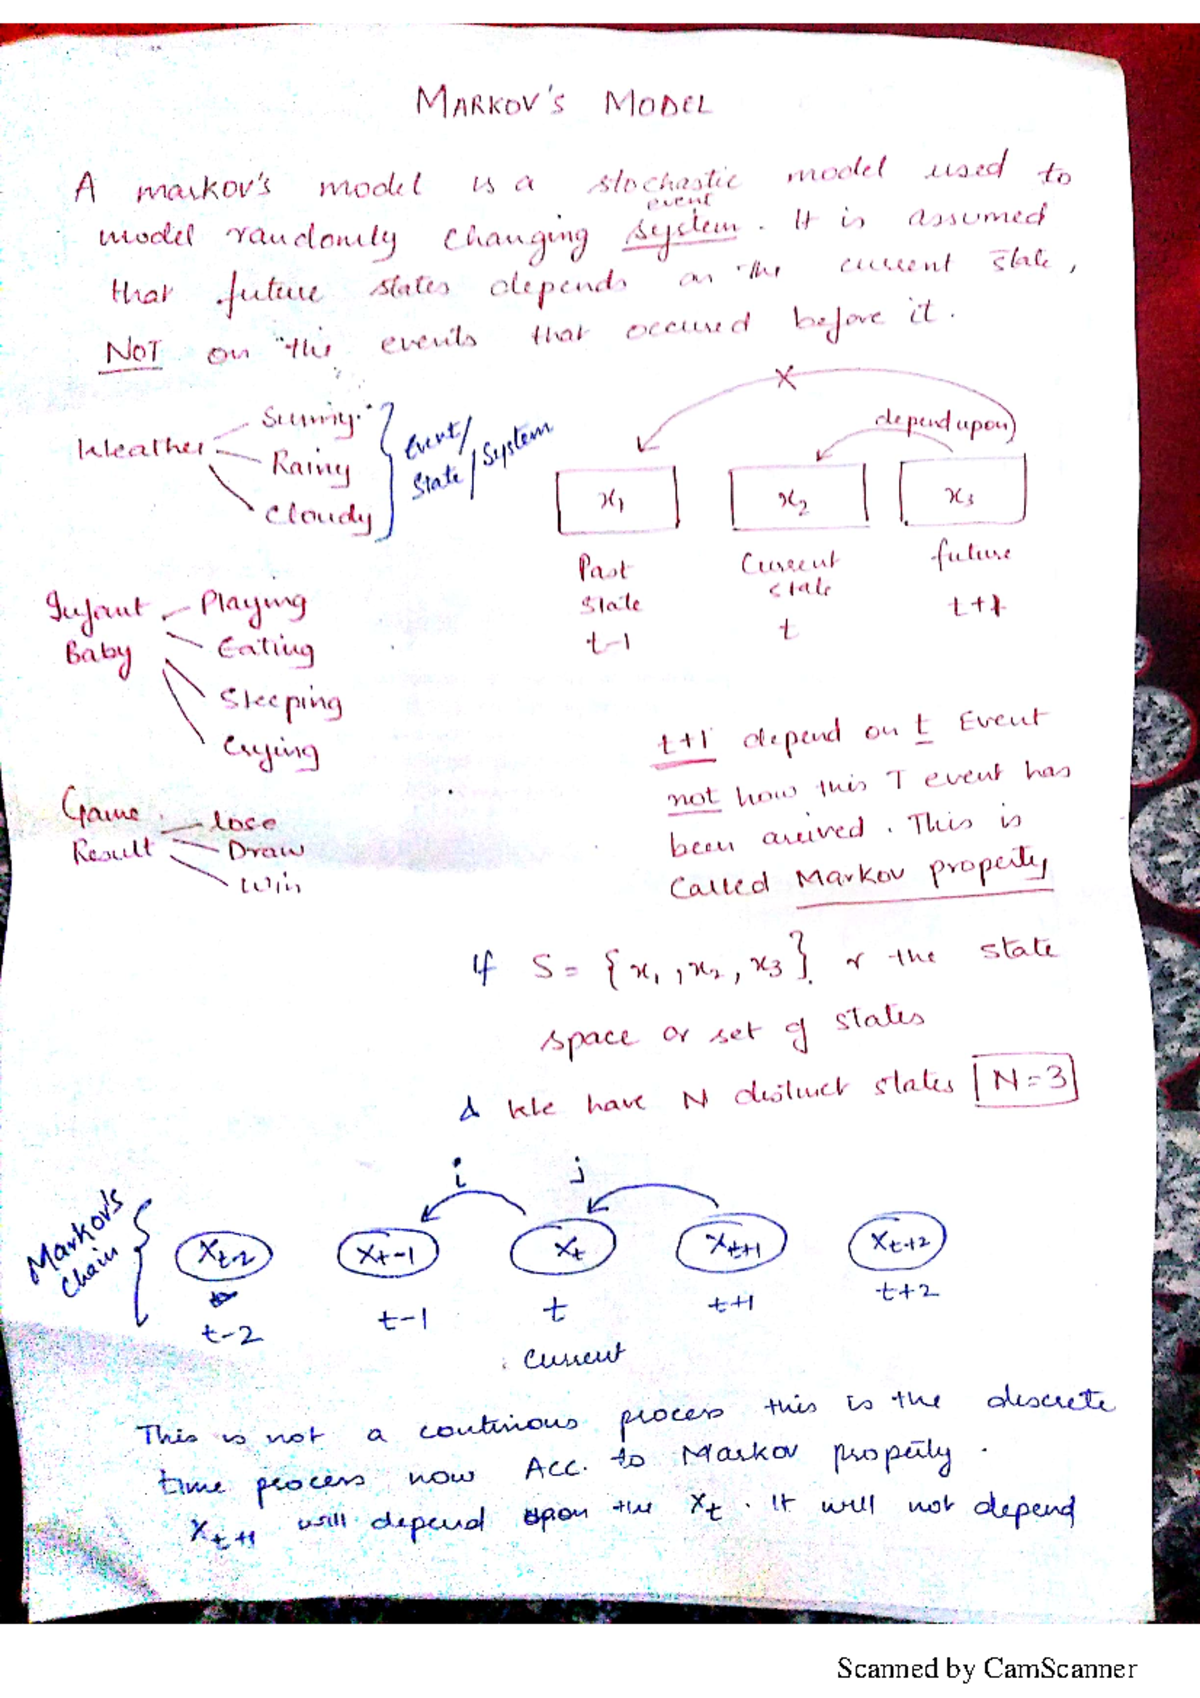 MARKOV'S MODEL
A markov's model is a stochastic model used to
event
model randomly changing system. It is assumed
that future states depends on the current state,
NOT on the events that occured before it.
Weather
Sunny
Rainy
Cloudy
Event/
State/System
X
depend upon
x1
x2
x3
Past
State
t-1
Current
state
t
future
t+1
Infant
Baby
Playing
Eating
Sleeping
Crying
Game
Result
lose
Draw
Win
t+1 depend on t Event
not how this T event has
been arrived. This is
Called Markov property
If S = {x1, x2, x3} r the state
space or set of states
& We have N distinct states N=3
i
j
Markov's
Chain
Xt-2
Xt-1
Xt
Xt+1
Xt+2
t-2
t-1
t
t+1
t+2
Current
This is not a continous process this is the discrete
time process now Acc. to Markov property.
Xt+1 will depend upon the Xt. It will not depend
Scanned by CamScanner